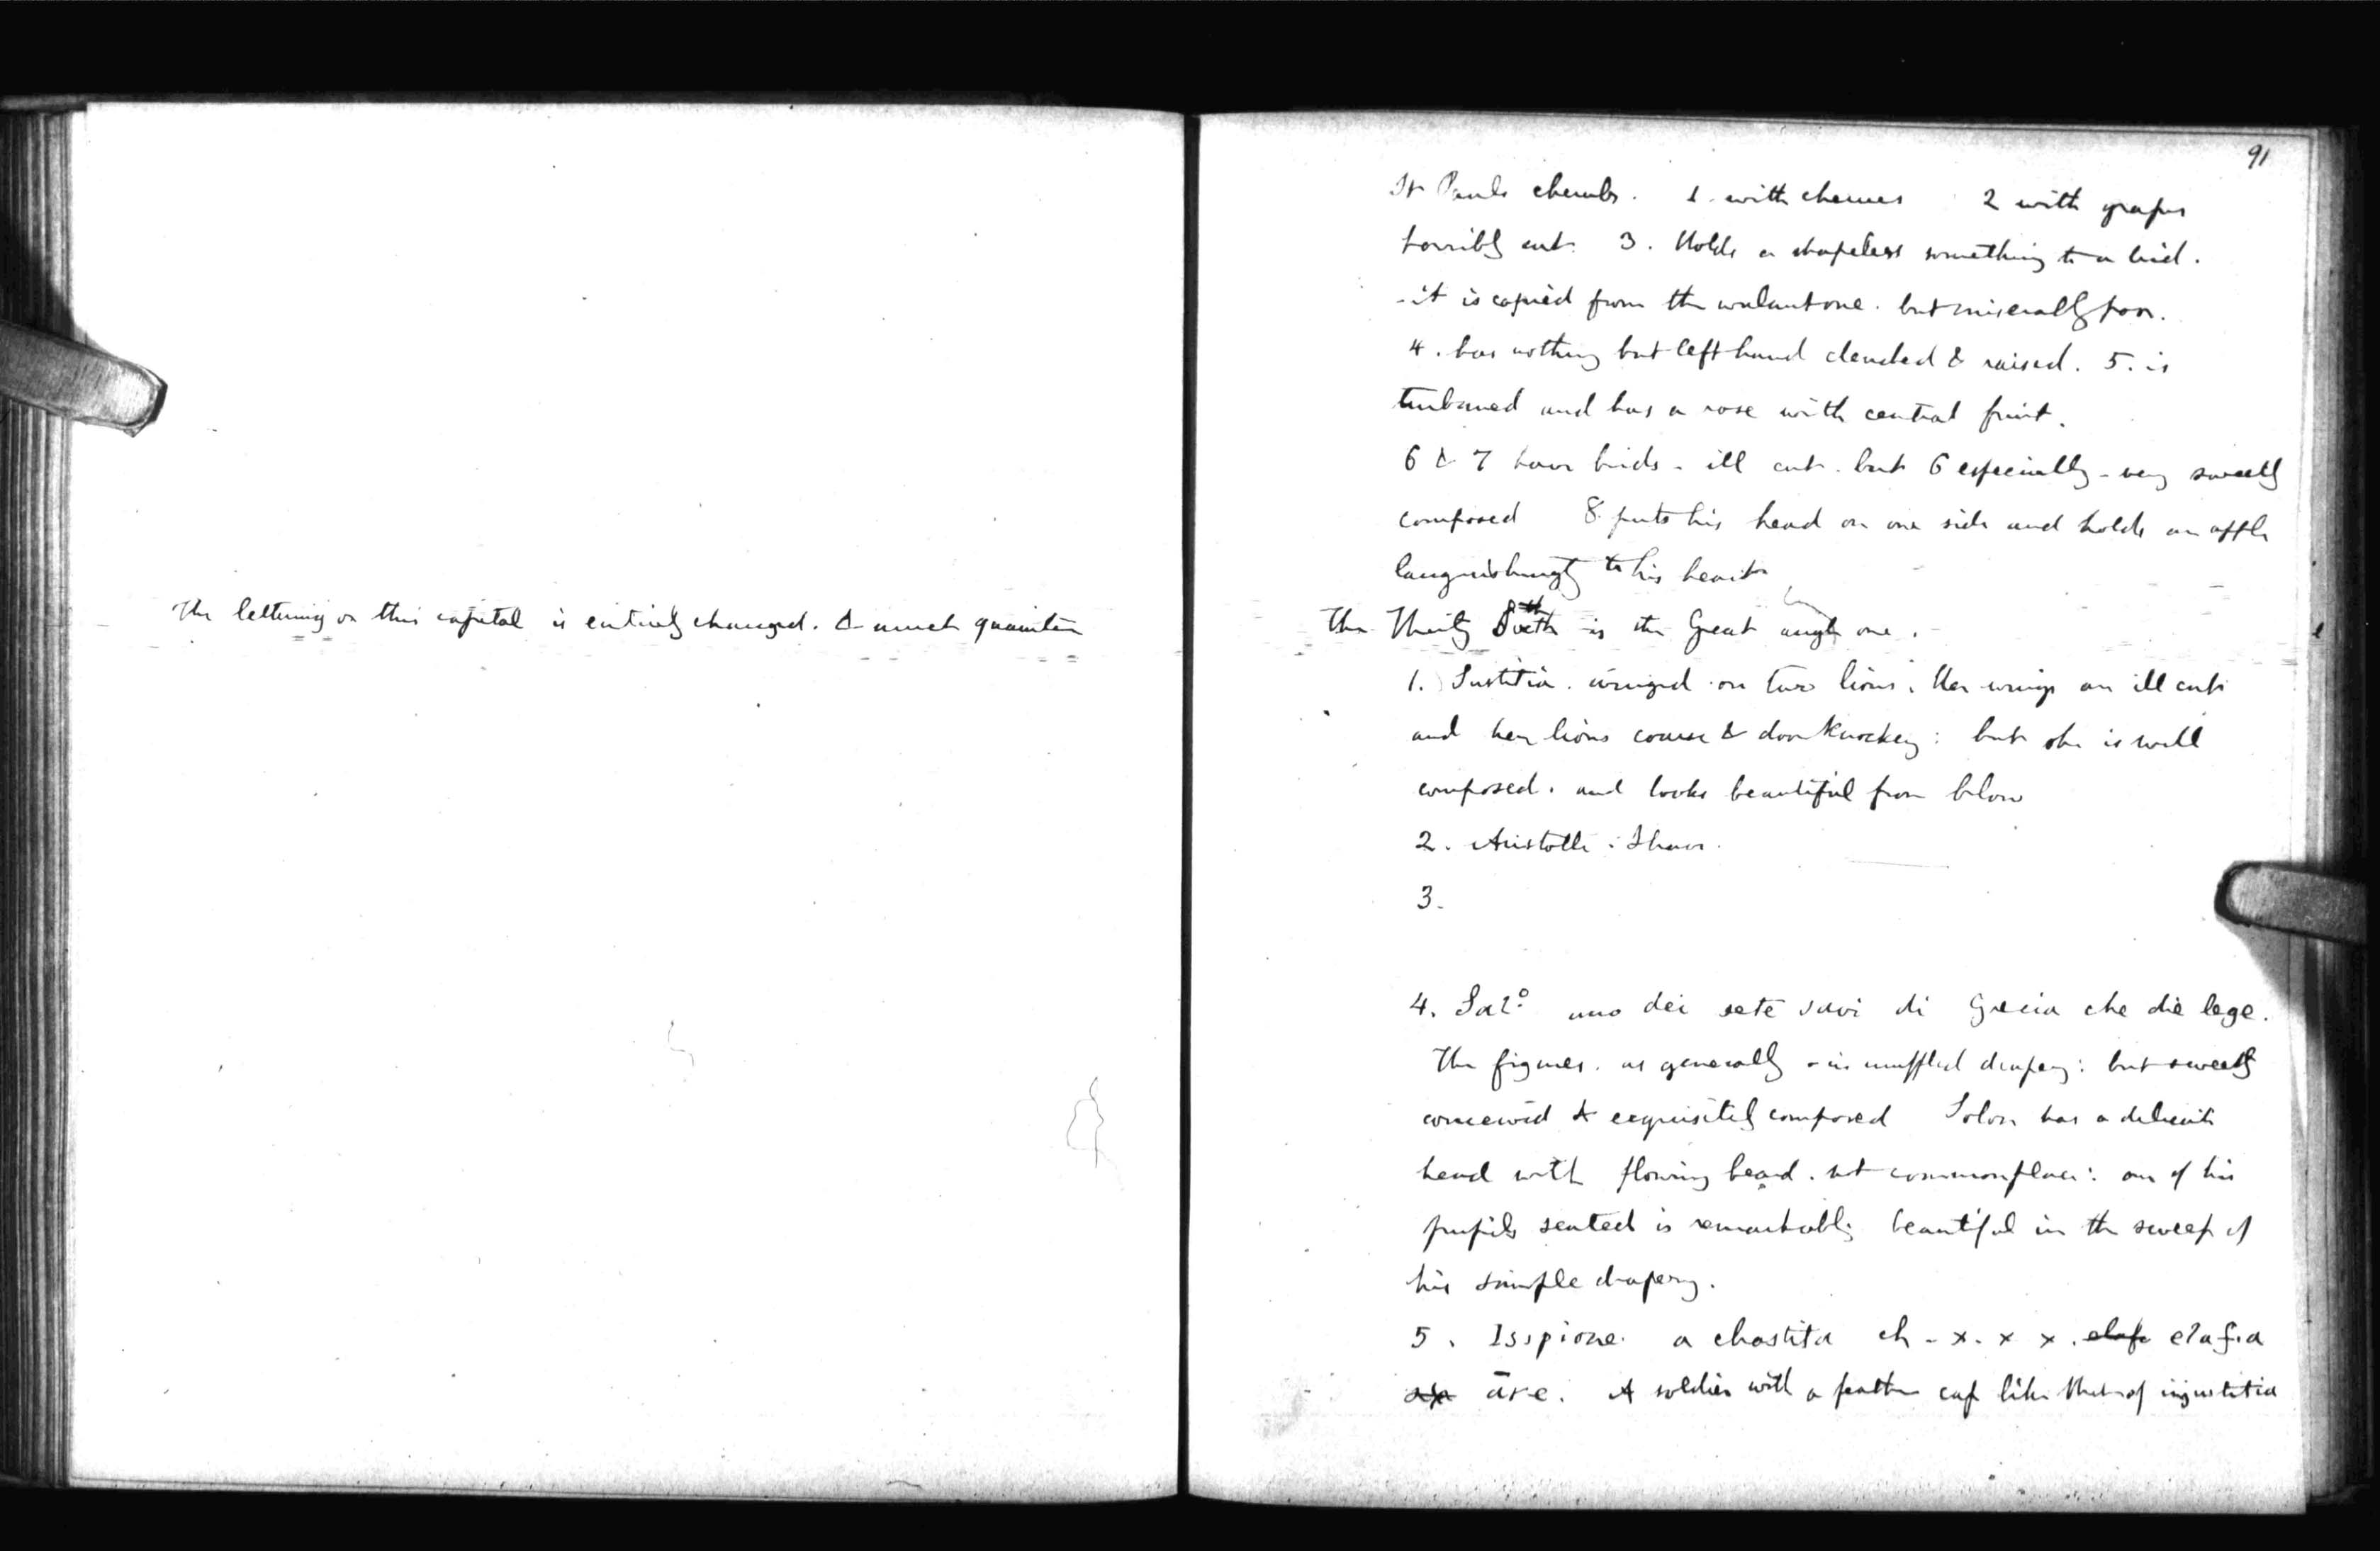 The lettering on this capital is entirely changed. & much quainter
91
St Pauls cherubs. 1. with cherries 2 with grapes
horribly cut. 3. Holds a shapeless something to a bird.
- it is copied from the walnut one. but miserably poor.
4. has nothing but left hand clenched & raised. 5. is
turbaned and has a rose with central fruit.
6 & 7 have birds - ill cut. but 6 especially - very sweetly
composed 8. puts his head on one side and holds an apple
languishingly to his heart
The Thirty Sixth is the Great angle one.
1. Justitia. winged on two lions. Her wings are ill cut
and her lions coarse & doorknockery: but she is well
composed. and looks beautiful from below
2. Aristotle:
3.
4. Sal° uno dei sete savi di Grecia che die lege.
The figures. as generally - in muffled drapery: but sweetly
conceived & exquisitely composed Solon has a delicate
head with flowing beard. not commonplace: one of his
pupils seated is remarkably beautiful in the sweep of
his simple drapery.
5. Isipione a chastita ch - x. x x. elafia
are. A soldier with a feather cap like that of injustitia